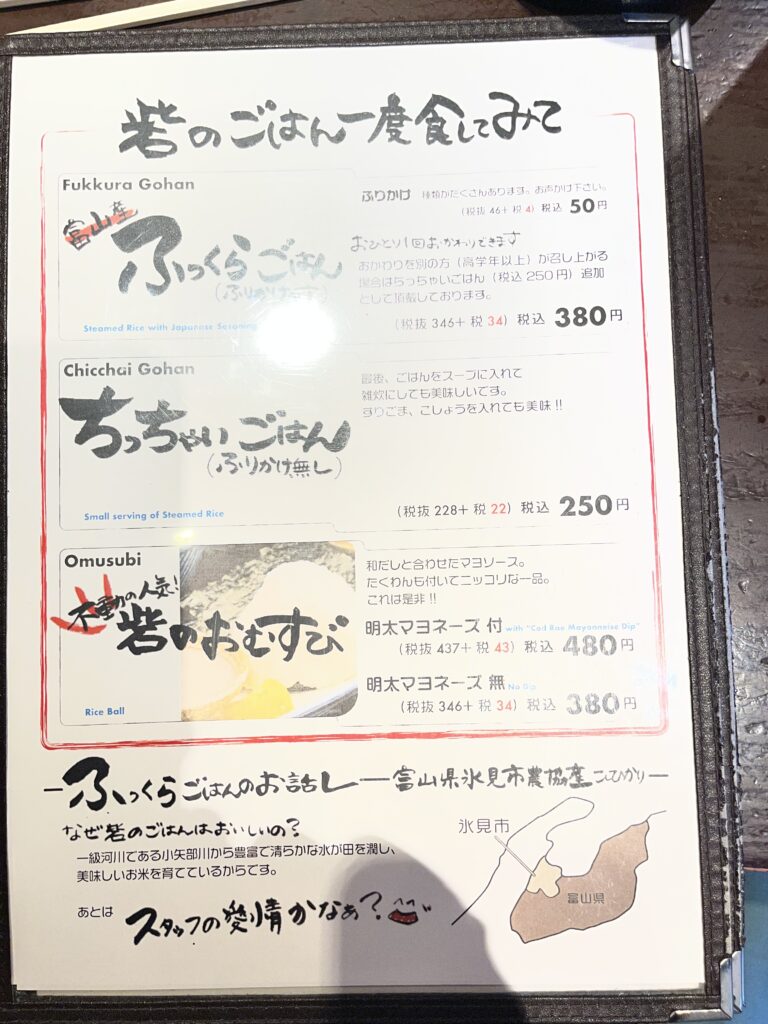 砦のごはん一度食してみて
Fukkura Gohan
富山産
ふっくらごはん
Steamed Rice with Japanese
ふりかけ 種類がたくさんあります。お声かけ下さい。
(税抜 46+ 税 4) 税込 50円
おひとり1回おかわりできます
おかわりを別の方(高学年以上)が召し上がる
場合はちっちゃいごはん(税込250円)追加
として頂戴しております。
(税抜 346+ 税 34) 税込 380円
Chicchai Gohan
ちっちゃいごはん
(ふりかけ無し)
Small serving of Steamed Rice
最後、ごはんをスープに入れて
雑炊にしても美味しいです。
すりごま、こしょうを入れても美味!!
(税抜 228+ 税 22) 税込 250円
Omusubi
不動の人気!
砦のおむすび
Rice Ball
和だしと合わせたマヨソース。
たくわんも付いてニッコリな一品。
これは是非!!
明太マヨネーズ 付 with "Cod Roe Mayonnaise Dip"
(税抜 437+ 税 43) 税込 480円
明太マヨネーズ 無 No Dip
(税抜 346+ 税 34) 税込 380円
ふっくらごはんのお話し―富山県氷見市農協産こしひかり―
なぜ砦のごはんはおいしいの?
一級河川である小矢部川から豊富で清らかな水が田を潤し、
美味しいお米を育てているからです。
あとは スタッフの愛情かなぁ?
氷見市
富山県